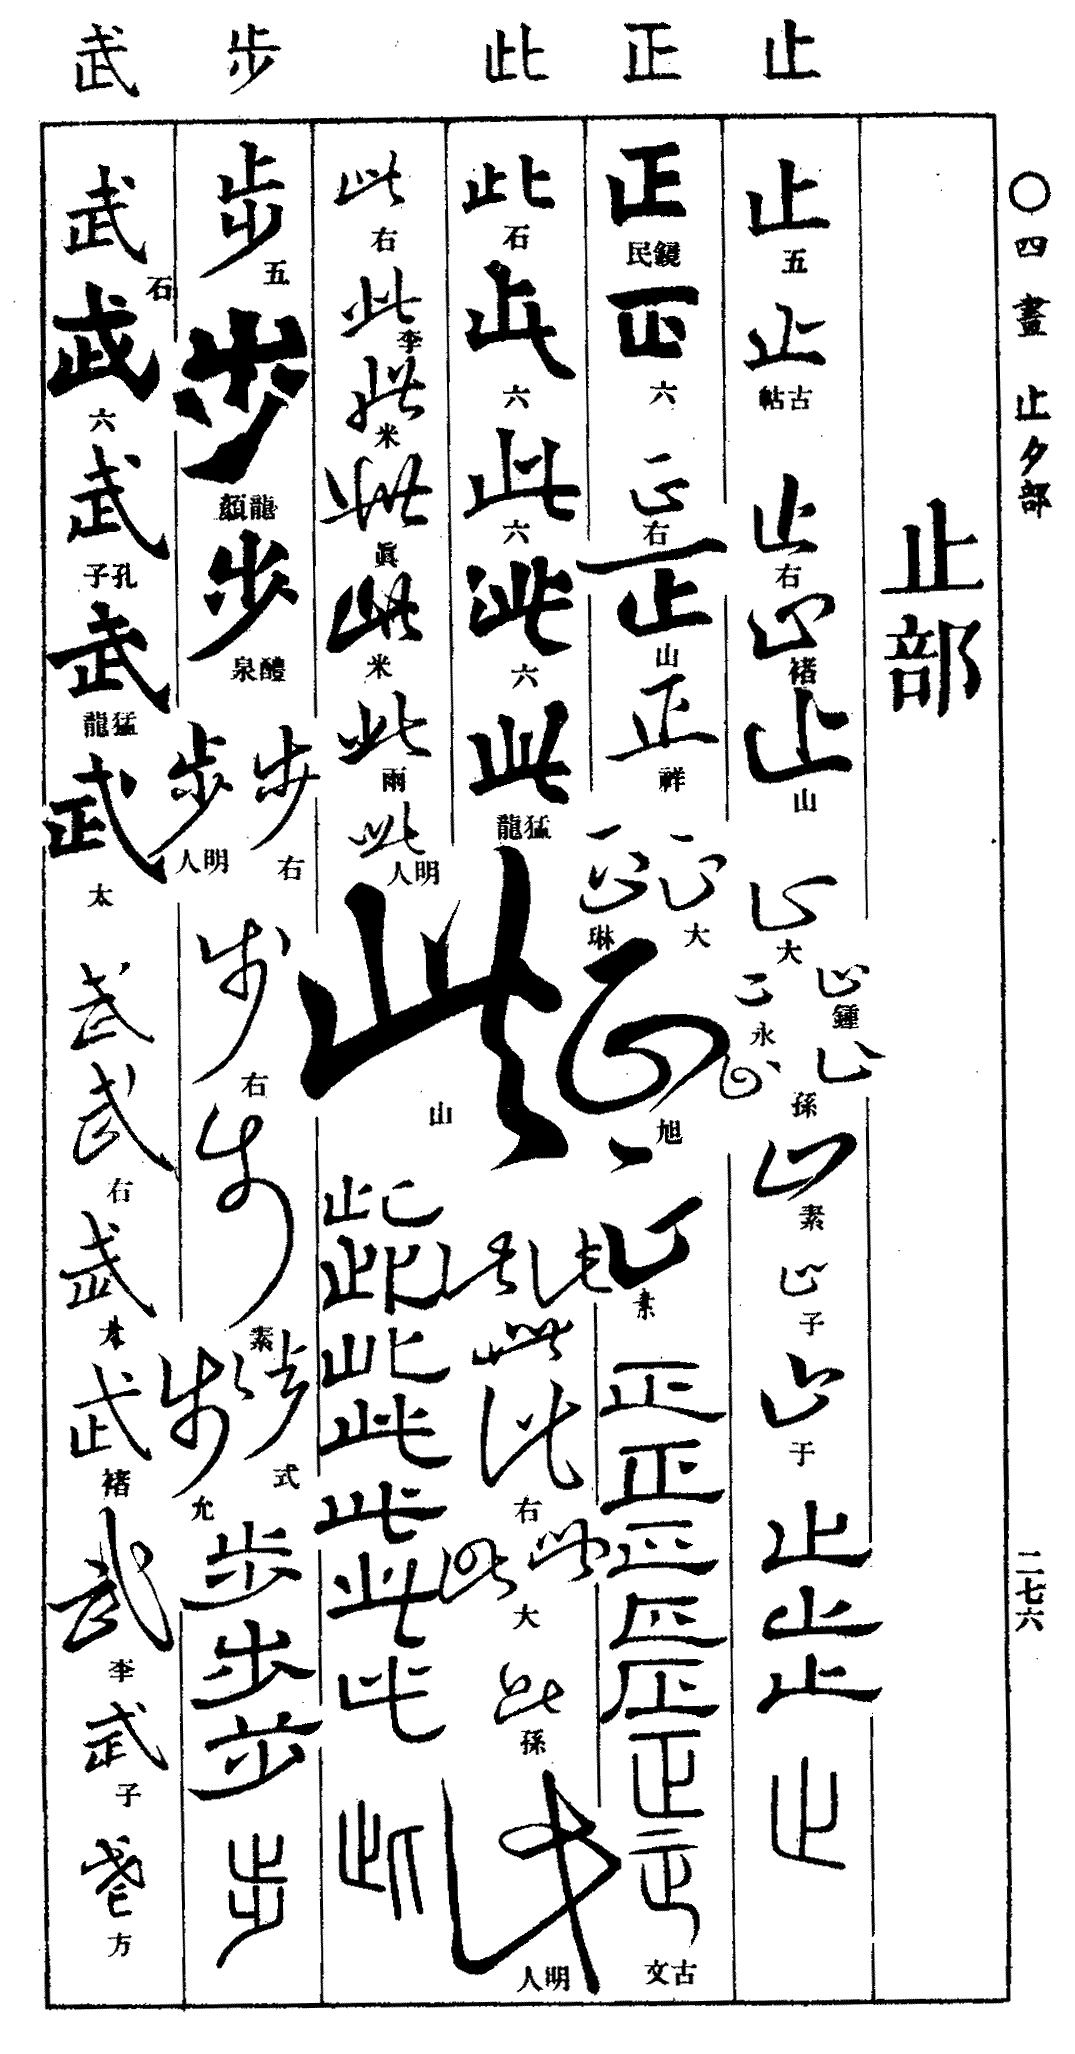 〇四畫 止夕部
二七六
止部
止
止 五
止 古帖
止 右
止 褚
止 山
止 大
止 鍾
止 永
止
止 孫
止 素
止 子
止 于
止
止
止
止
正
正 民鏡
正 六
正 右
正 山
正 祥
正 大
正 琳
正 旭
正 素
正
正
正
正
正
正
正 古文
此
此 石
此 六
此 六
此 六
此 龍猛
此 山
此
此
此
此 右
此 大
此
此 孫
此 明人
此 右
此 李
此 米
此 眞
此 米
此 雨
此 明人
此
此
此
此
此
此
此
此
步
步 五
步 顏龍
步 泉醴
步 右
步 明人
步 右
步 素
步 式
步 允
步
步
步
步
武
武 石
武 六
武 孔子
武 龍猛
武 太
武
武 右
武
武 褚
武 李
武 子
武 方